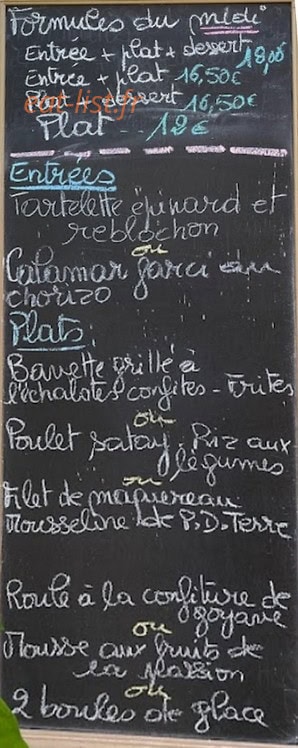 Formules du midi
Entrée + plat + dessert 18,00
Entrée + plat 16,50€
Plat + dessert 16,50€
eat-list.fr
Plat -- 12€
Entrées
Tartelette épinard et
reblochon
ou
Calamar farci au
chorizo
Plats
Bavette grillé à
l'échalotes confites - Frites
ou
Poulet satay. Riz aux
légumes
ou
Filet de maquereau
Mousseline de P.D.Terre
Roulé à la confiture de
goyave
ou
Mousse aux fruits de
la passion
ou
2 boules de glace